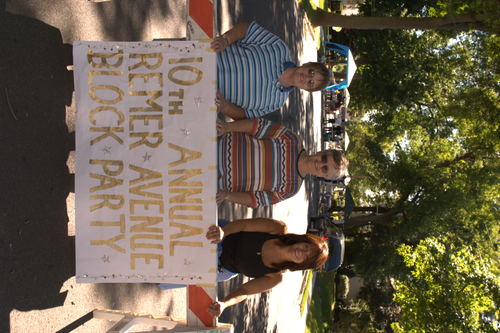 10TH ANNUAL
REMER AVENUE
BLOCK PARTY